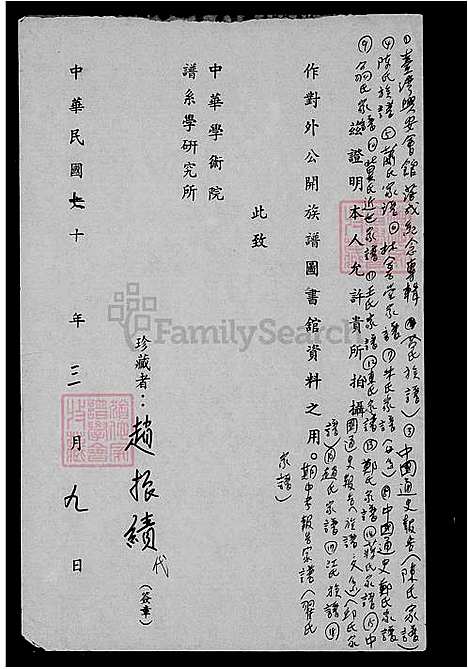 ①臺灣興安會館落成紀念專輯 族譜)③中國通史報告(陳氏家譜)
④陳氏族譜⑤蕭氏家譜⑥林 堂家譜⑦朱氏家譜 中國通史鄭氏家譜
⑨翁氏家譜⑩黃氏近世家譜⑪王氏家譜⑫陳氏家譜⑬鄭氏家譜⑭蔡氏家譜⑮中
國通史報告(族譜 邱氏家
譜 趙氏家譜 江氏族譜
期中考報告家譜(翟氏
家譜)
茲證明本人允許貴所拍攝
作對外公開族譜圖書館資料之用。
此致
中華學術院
譜系學研究所
珍藏者：趙振績代
(簽章)
中華民國七十年三月九日
FamilySearch